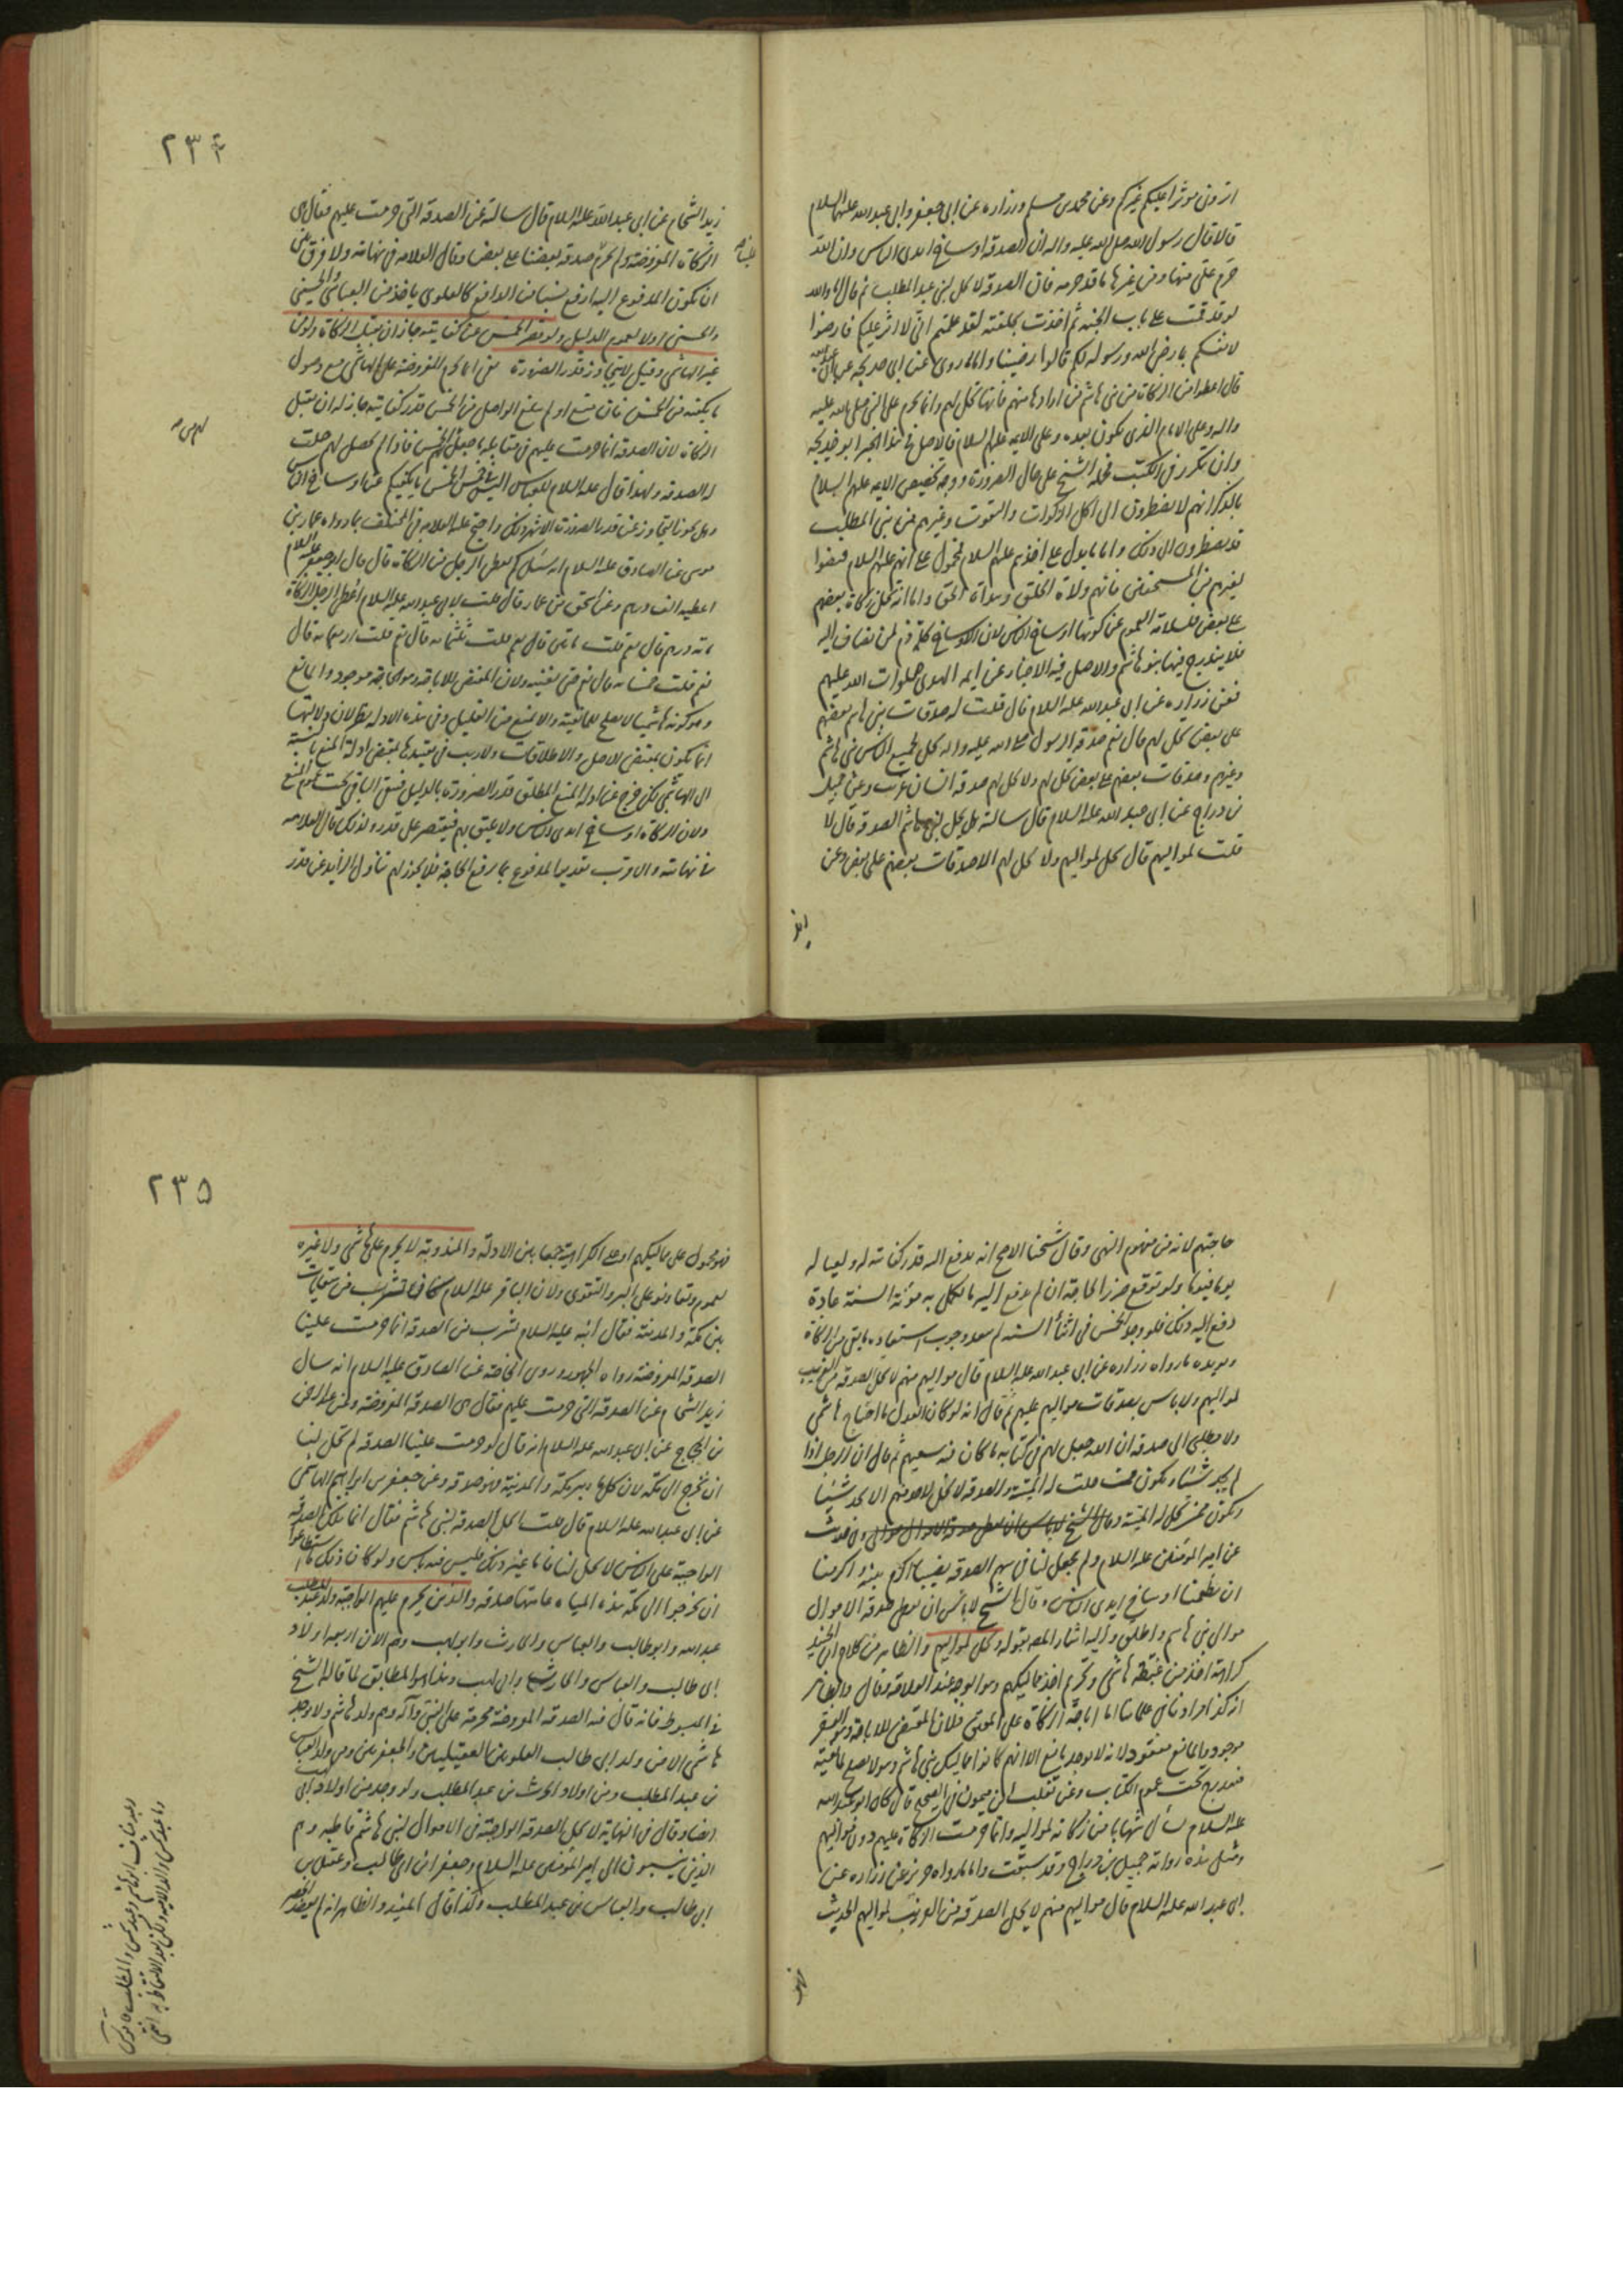 اتروني موثرا عليكم غيركم وعن محمد بن مسلم وزراره عن ابي جعفر وابي عبد الله عليهما السلام
قالا قال رسول الله صلى الله عليه واله ان الصدقه اوساخ ايدى الناس وان الله
حرم على منها ومن غيرها ما قد حرمه فان الصدقة لا تحل لبنى عبد المطلب ثم قال اما والله
لو قد قمت على باب الجنه ثم اخذت بحلقته لقد علمتم انى لا اوثر عليكم فارضوا
لانفسكم بما رضى الله ورسوله لكم قالوا رضينا واما ما روى عن ابى خديجه عن ابى عبد الله
قال اعطوا من الزكاة من بنى هاشم من ارادها منهم فانها تحل لهم وانما تحرم على النبى صلى الله عليه
واله وعلى الامام الذى يكون بعده وعلى الايمه عليهم السلام فالاصل فى هذا الخبر ابو خديجه
وان تكرر فى الكتب فحمله الشيخ على حال الضرورة ووجه تخصيص الايمه عليهم السلام
بالذكر انهم لا يضطرون الى اكل الزكوات والتقوت وغيرهم من بنى المطلب
قد يضطرون الى ذلك واما ما يدل على اخذهم عليهم السلام فمحمول على انهم عليهم السلام قبضوا
لغيرهم من المستحقين فانهم ولاة الخلق وهداة الحق واما انه تحل زكاة بعضهم
على بعض فلسلامة العموم عن كونها اوساخ الناس لان الاوساخ كلها ذم لمن تضاف اليه
فلا يندرج فيها بنو هاشم والاصل فيه الاخبار عن ايمه الهدى صلوات الله عليهم
فعن زراره عن ابى عبد الله عليه السلام قال قلت له صدقات بنى هاشم بعضهم
على بعض تحل لهم قال نعم صدقه الرسول صلى الله عليه واله تحل لجميع الناس بنى هاشم
وغيرهم وصدقات بعضهم على بعض تحل لهم ولا تحل لهم صدقه انسان غريب وعن جميل
بن دراج عن ابى عبد الله عليه السلام قال سالته هل تحل لبنى هاشم الصدقه قال لا
قلت لمواليهم قال تحل لمواليهم ولا تحل لهم الا صدقات بعضهم على بعض وعن
٢٣٤
زيد الشحام عن ابى عبد الله عليه السلام قال سالته عن الصدقه التى حرمت عليهم فقال هى
الزكاة المفروضة ولم تحرم صدقة بعضنا على بعض وقال العلامه فى نهايته ولا فرق بين
ان يكون المدفوع اليه ارفع نسبا من الدافع كالعلوى ياخذ من العباسى والحسينى
والحسنى اولا لعموم الدليل ولو قصر الخمس عن كفايته جاز ان يقبل الزكاة ولو من
غير الهاشمى وقيل لا يتجاوز قدر الضرورة يعنى انما تحرم المفروضة على الهاشمى مع وصول
ما يكفيه من الخمس فان منع او لم يبلغ الواصل من الخمس قدر كفايته جاز له ان يقبل
الزكاة لان الصدقه انما حرمت عليهم فى مقابله ما جعل لهم من الخمس فاذا لم يحصل لهم حلت
له الصدقه ولهذا قال عليه السلام للعباس اليس فى خمس الخمس ما يكفيكم عن اوساخ الناس
وهل يجوز التجاوز عن قدر الضرورة الاشهر ذلك واحتج عليه العلامه فى المختلف بما رواه عمار بن
موسى عن الصادق عليه السلام انه سئل كم يعطى الرجل من الزكاة قال قال ابو جعفر عليه السلام
اعطيه الف درهم وعن اسحق بن عمار قال قلت لابى عبد الله عليه السلام اعطى الرجل من الزكاة
مائه درهم قال نعم قلت مائتى قال نعم قلت ثلثمائه قال نعم قلت اربعمائه قال
نعم قلت خمسمائه قال نعم حتى تغنيه ولان المقتضى للاباحه وهو الحاجة موجود والمانع
وهو كونه هاشميا لا يصلح للمانعية والا لمنع من القليل وفى هذه الادله نظر لان دلالتها
انما يكون بمقتضى الاصل والاطلاقات ولا ريب فى تقييدها بمقتضى ادلة المنع بالنسبه
الى الهاشمى لكن خرج عن ادله المنع المطلق قدر الضرورة بالدليل فيبقى الباقى تحت عموم المنع
ولان الزكاة اوساخ ايدى الناس ولا يليق بهم فيقتصر على قدره ولذلك قال العلامه
فى نهايته والاقرب تقدير المدفوع بما يرفع الحاجة فلا يجوز لهم تناول الزايد عن قدر
حاجتهم لانه من مفهوم النهى وقال شيخنا الاصح انه يدفع اليه قدر كفايته له ولعياله
يوما فيوما ولو توقع ضرر الحاجة ان لم يدفع اليه ما يكمل به مؤنة السنة عادة
دفع اليه ذلك فلو وجد الخمس فى اثناء السنه لم يبعد وجوب استعاده ما بقى من الزكاة
ويويده ما رواه زراره عن ابى عبد الله عليه السلام قال مواليهم منهم لا تحل الصدقه من الغريب
لمواليهم ولا باس بصدقات مواليهم عليهم ثم قال انه لو كان العدل ما احتاج هاشمى
ولا مطلبى الى صدقه ان الله جعل لهم فى كتابه ما كان فيه سعتهم ثم قال ان الرجل اذا
لم يجد شيئا حلت له الميتة والصدقه لا تحل لاحد منهم الا ان لا يجد شيئا
ويكون ممن تحل له الميتة
عن امير المومنين عليه السلام ولم يجعل لنا فى سهم الصدقه نصيبا اكرم نبيه واكرمنا
ان يطعمنا اوساخ ايدى الناس وقال الشيخ لا باس ان يعطى صدقه الاموال
موالى بنى هاشم واطلق واليه اشار المص بقوله وتحل لمواليهم والظاهر من كلام ابن الجنيد
كراهة اخذ من عتقه هاشمى وتحريم اخذ مماليكهم وهو الوجه عند العلامه وقال والظاهر
موجود والمانع مفقود لانه لا يوجد مانع الا انهم كانوا مماليك بنى هاشم وهو لا يصلح للمانعية
فيندرج تحت عموم الكتاب وعن ثعلبه بن ميمون فى الصحيح قال كان ابو عبد الله
عليه السلام يسأل شهابا من زكاته لمواليه وانما حرمت الزكاة عليهم دون مواليهم
ومثل هذه رواية جميل بن دراج وقد سبقت واما ما رواه حريز عن زراره عن
ابى عبد الله عليه السلام قال مواليهم منهم لا تحل الصدقه من الغريب لمواليهم الحديث
٢٣٥
فهو محمول على مماليكهم او على الكراهية جمعا بين الادلة والمندوبة لا تحرم على هاشمى ولا غيره
لعموم وتعاونوا على البر والتقوى ولان الباقر عليه السلام كان يشرب من سقايات
بين مكة والمدينة فقال انه عليه السلام نشرب من الصدقه انما حرمت علينا
الصدقه المفروضة رواه الجمهور وروى الخاصه عن الصادق عليه السلام انه سال
زيد الشحام عن الصدقه التى حرمت عليهم فقال هى الصدقه المفروضة وعن عبد الرحمن
بن الحجاج عن ابى عبد الله عليه السلام انه قال لو حرمت علينا الصدقه لم تحل لنا
ان نخرج الى مكة لان كل ما بين مكة والمدينة فهو صدقه وعن جعفر بن ابراهيم الهاشمى
عن ابى عبد الله عليه السلام قال قلت اتحل الصدقه لبنى هاشم فقال انما تلك الصدقه
الواجبة على الناس لا تحل لنا فاما غير ذلك فليس فيه باس ولو كان ذلك ما استطاعوا
ان يخرجوا الى مكة هذه المياه عامتها صدقه والذين يحرم عليهم الواجبة ولد عبد المطلب
عبد الله وابو طالب والعباس والحارث وابو لهب وهم الان اربعه اولاد
ابى طالب والعباس والحارث وابى لهب وهذا هو المطابق لما قاله الشيخ
فى المبسوط فانه قال فيه الصدقه المفروضة محرمة على النبى وآله وهم ولد هاشم ولا يوجد
هاشمى الا من ولد ابى طالب العلويين والعقيليين والجعفريين ومن ولد العباس
بن عبد المطلب ومن اولاد الحرث بن عبد المطلب ولو وجد من اولاد ابى لهب
ايضا وقال فى النهاية لا تحل الصدقه الواجبة فى الاموال لبنى هاشم قاطبه وهم
الذين ينسبون الى امير المومنين عليه السلام وجعفر ابن ابى طالب وعقيل بن
ابى طالب والعباس بن عبد المطلب وكذا قال المفيد والظاهر انه لم يقصد الحصر